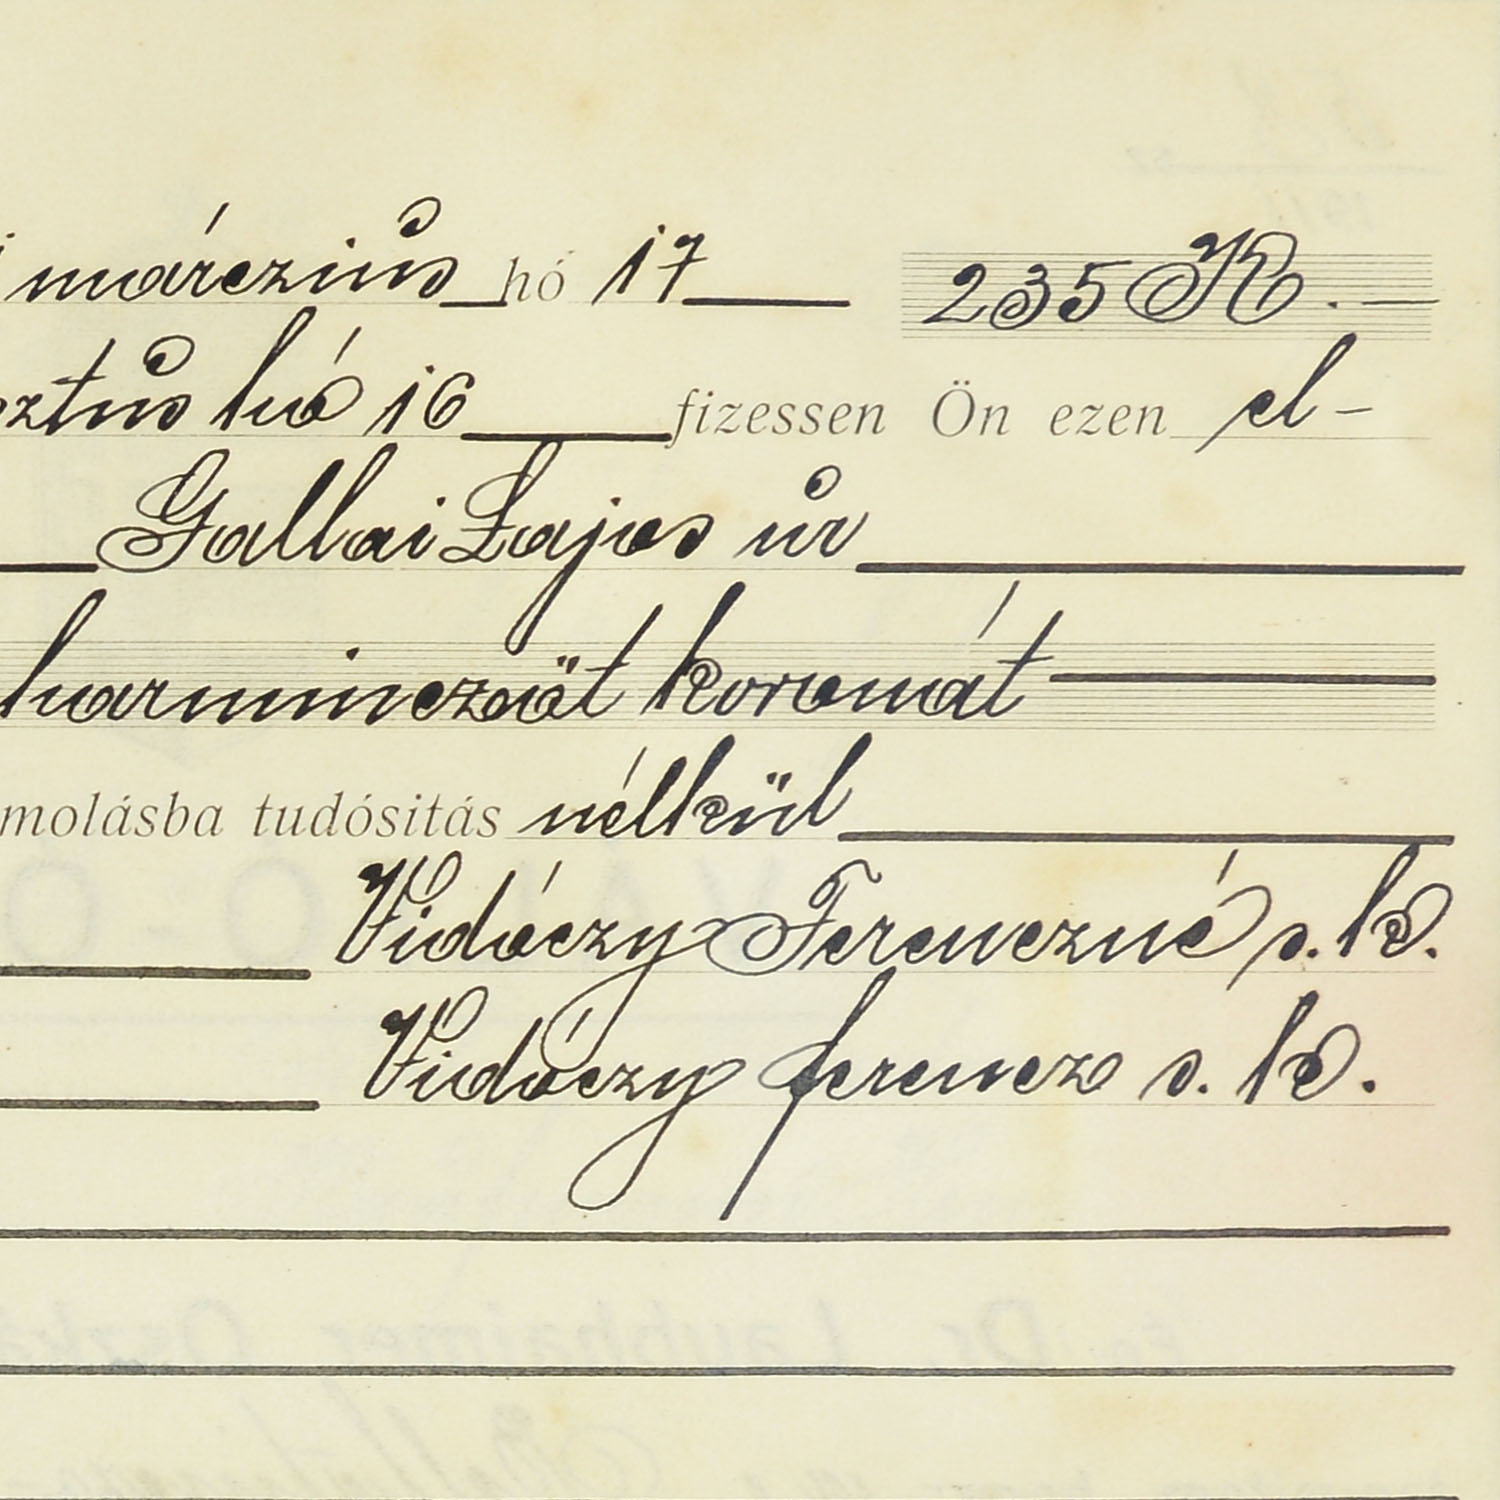 márczius hó 17 235 K. —
sztus hó 16 fizessen Ön ezen el-
Gallai Lajos úr
harminczöt koronát
molásba tudósitás nélkül
Vidóczy Ferenczné s. k.
Vidóczy ferencz s. k.